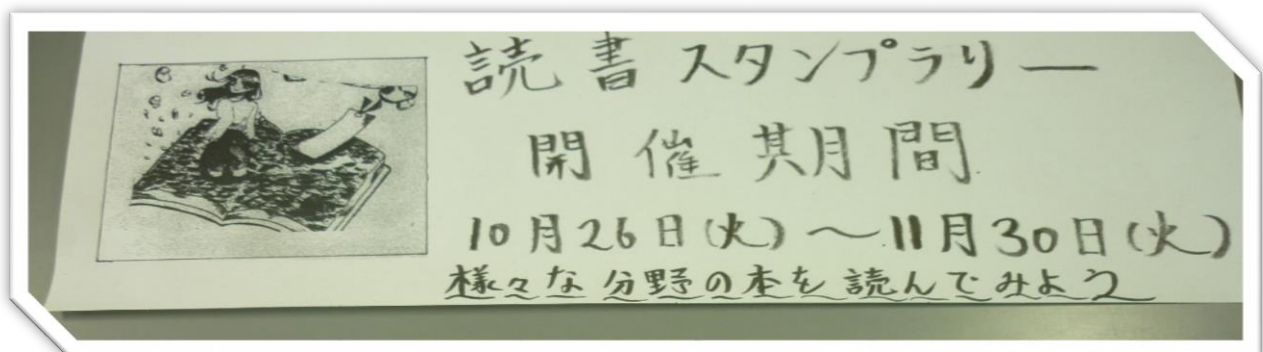 読書スタンプラリー
開催期間
10月26日(火)～11月30日(火)
様々な分野の本を読んでみよう